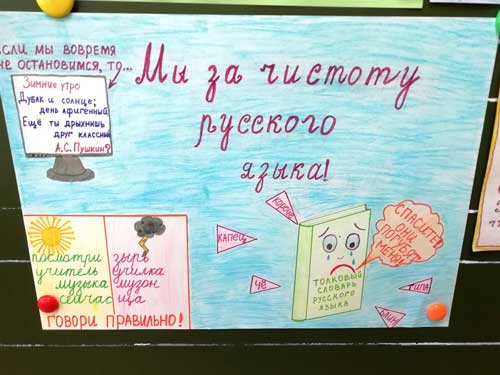 если мы вовремя
не остановимся, то...
Зимние утро
Дубак и солнце;
день афигенный
Ещё ты дрыхнишь
друг классный
А.С. Пушкин?
Мы за чистоту
русского
языка!
посмотри
учитель
музыка
сейчас
зырь
училка
музон
ща
говори правильно!
короче
капец
чё
типа
блин
Спасите!
они
погубят
меня!
толковый
словарь
русского
языка